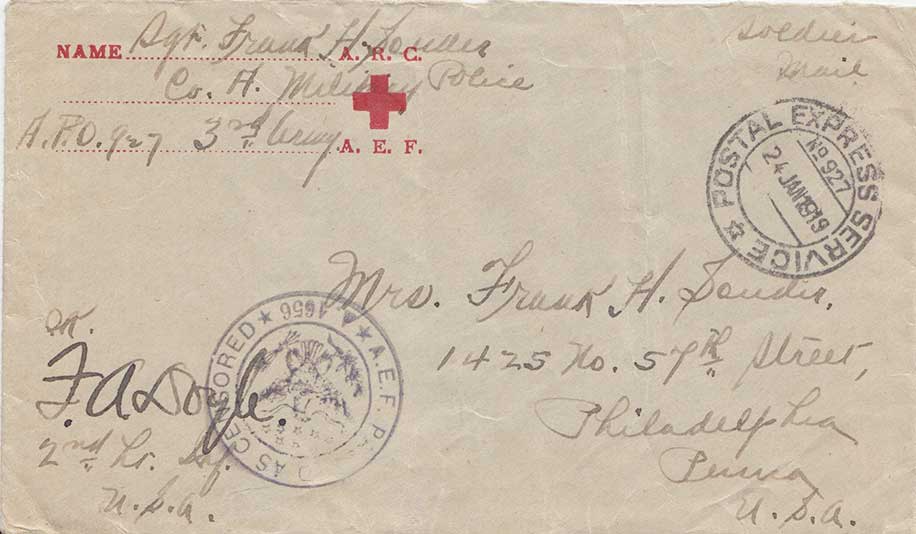 NAME Sgt. Frank H. Souder A. R. C.
Co. H. Military Police
A.P.O. 927 3rd Army A. E. F.
Soldier
Mail
POSTAL EXPRESS SERVICE
No 927
24 JAN 1919
Mrs. Frank H. Souder,
1425 No. 57th Street,
Philadelphia
Penna
U. S. A.
A.E.F. PASSED AS CENSORED
A 656
OK.
F. A. Doyle.
2nd Lt. Inf.
U. S. A.